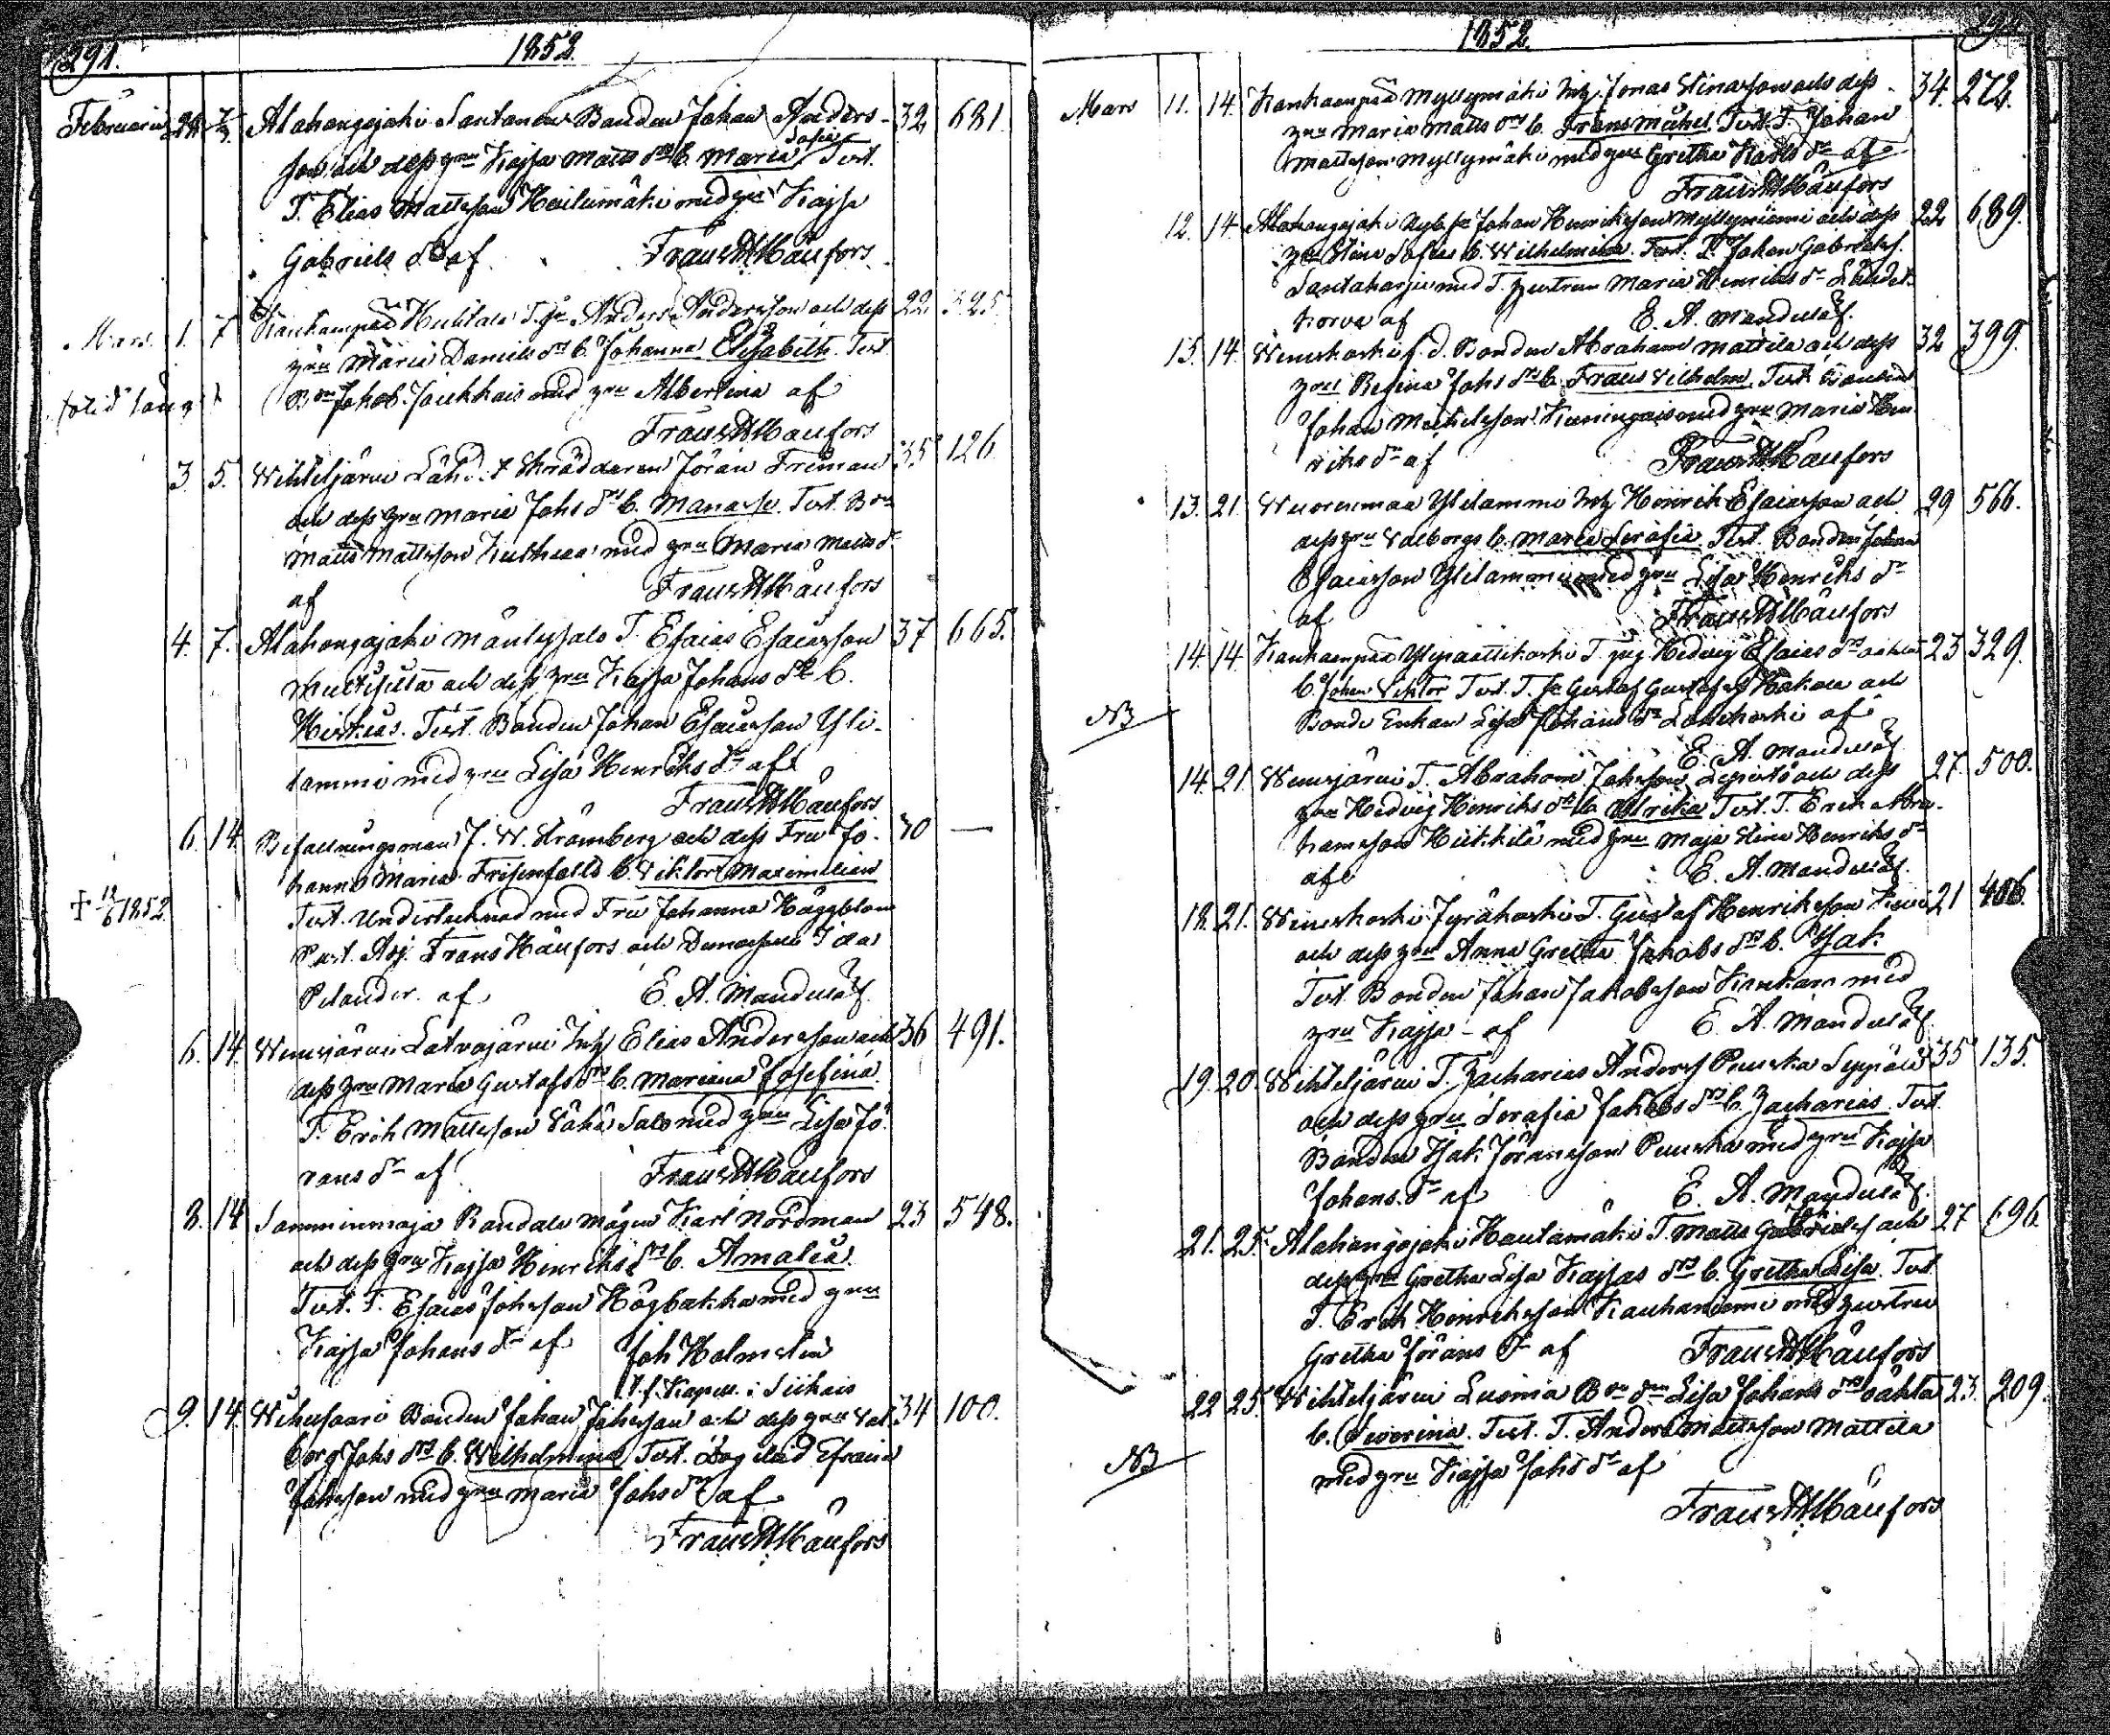 291.
1852
Februarius 28 7/3 Alahongojoki Santanen Bonden Johan Anders- 32 681.
son och dess hru Kajsa Matts dr b. Maria Sofia Test.
T. Elias Mattsson Hailumäki med hru Kajsa
Gabriels dr af Frans H Häufors
Mars 1. 7 Kankaanpää Huhtala T. Anders Andersson och dess 22 325.
hru Maria Daniels dr b. Johanna Elisabeth. Test.
Bon Jakob Jaukkais med hru Albertina af
Frans H Häufors
3. 5. Wihteljärvi Skräddaren Jöran Friman 35 126
och dess hru Maria Johs dr b. Manasse. Test. Bon
Matts Mattsson med hru Maria Matts dr
af Frans H Häufors
4. 7. Alahongojoki Mäntysalo T. Esaias Esaiasson 37 665.
och dess hru Kajsa Johans dr b.
Hiskias. Test. Bonden Johan Esaiasson Yli-
lammi med hru Lisa Henriks dr af
Frans H Häufors
6. 14. Befallningsman J. W. Strömberg och dess Fru Jo- 40 —
hanna Maria b. Viktor Maximilian
+ 19/6 1852
Test. Undertecknad med Fru Johanna Häggblom
Past. Adj. Frans Häufors och Demoiselle Ida
Pelander. af E. A. Mandelöf.
6. 14. Wenesjärvi Latvajärvi Elias Andersson och 36 491.
dess hru Maria Gustafs dr b. Mariana Josefina
T. Erik Mattsson Vähä Salo med hru Lisa Jö-
rans dr af Frans H Häufors
8. 14. Samminmaja Randala mågen Karl Nordman 23 548.
och dess hru Kajsa Henriks dr b. Amalia.
Test. T. Esaias Johsson Högbakka med hru
Kajsa Johans dr af Joh Holmstén
v. f. Kapell. i Siikais
9. 14. Wihusaari Bonden Johan Johsson och dess hru Val- 34 100.
borg Johs dr b. Wilhelmina Test. Efraim
Johsson med hru Maria Johs dr af
Frans H Häufors
1852.
Mars 11. 14. Kankaanpää Myllymäki Jonas Stinasson och dess 34. 272.
hru Maria Matts dr b. Frans Mikel. Test. T. Johan
Mattsson Myllymäki med hru Gretha Karls dr af
Frans H Häufors
12. 14. Alahongojoki Johan Henriksson Myllyniemi och dess 22 689.
hru Stina Sofias b. Wilhelmina. Test. Johan Gabrielss.
Santaharju med T. hustrun Maria Henriks dr
korva af E. A. Mandelöf.
13. 14. Weneskoski f. d. Bonden Abraham Mattila och dess 32 399.
hru Regina Johs dr b. Frans Vilhelm. Test.
Johan Mickelsson med hru Maria Hen-
riks dr af Frans H Häufors
13. 21. Wuorenmaa Ylilammi Henrik Esaiasson och 29 566.
dess hru Valborgs b. Maria Serafia. Test. Bonden Johan
Esaiasson Ylilammi med hru Lisa Henriks dr
af Frans H Häufors
14. 14. Kankaanpää Ylipaattikoski T. pig. Hedvig Esaias dr oäkta 23. 329.
b. Johan Viktor Test. T. Gustaf Gustafss och
NB
Bonde Enkan Lisa Johans dr af
E. A. Mandelöf
14. 21. Wenesjärvi T. Abraham Johsson Lepistö och dess 27. 500.
hru Hedvig Henriks dr b. Ulrika Test. T. Erik Abra-
hamsson Heikkilä med hru Maja Stina Henriks dr
af E. A. Mandelöf.
18. 21. Weneskoski Jyräkoski T. Gustaf Henriksson 21 406.
och dess hru Anna Gretha Jakobs dr b. Isak.
Test. Bonden Johan Jakobsson med
hru Kajsa af E. A. Mandelöf.
19. 20. Wihteljärvi T. Zacharias Anderss Penska Seppälä 35 135.
och dess hru Serafia Jakobs dr b. Zacharias. Test.
Bonden Isak Jöransson Penska med hru Kajsa
Johans dr af E. A. Mandelöf.
21. 25. Alahongojoki Hautamäki T. Matts Gabrielss och 27 696
dess hru Gretha Lisa Kajsas dr b. Gretha Lisa. Test.
T. Erik Henriksson Kauhaniemi med hustru
Gretha Jörans dr af Frans H Häufors
22 25. Wihteljärvi Luoma Bon dr Lisa Johans drs oäkta 23. 209.
b. Severina. Test. T. Anders Mattsson Mattila
NB
med hru Kajsa Johs dr af
Frans H Häufors